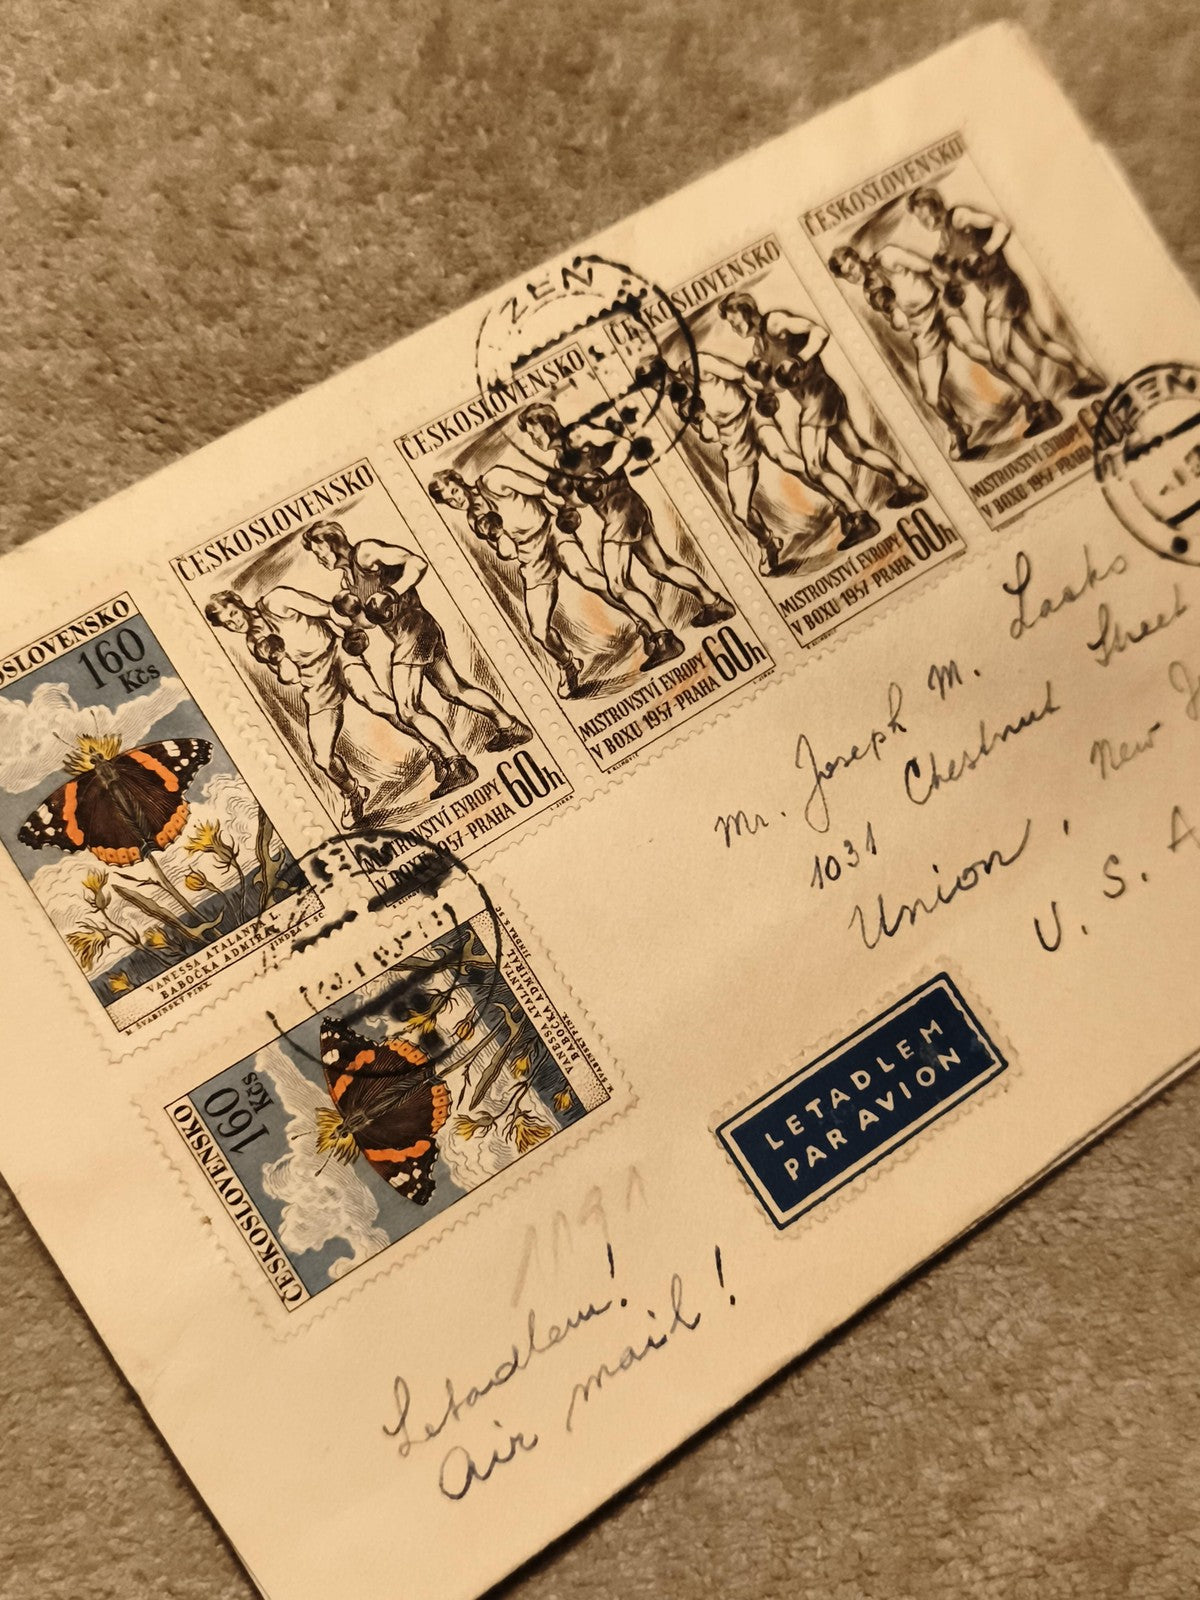 ČESKOSLOVENSKO
MISTROVSTVÍ EVROPY
V BOXU 1957-PRAHA 60h
ČESKOSLOVENSKO
MISTROVSTVÍ EVROPY
V BOXU 1957-PRAHA 60h
ČESKOSLOVENSKO
MISTROVSTVÍ EVROPY
V BOXU 1957-PRAHA 60h
ČESKOSLOVENSKO
MISTROVSTVÍ EVROPY
V BOXU 1957-PRAHA 60h
ZEŇ
ZEŇ
OSLOVENSKO
160
Kčs
VANESSA ATALANTA L.
BABOČKA ADMIRÁL
M. ŠVABINSKÝ PINX. JINDRA K. SC.
ČESKOSLOVENSKO
160
Kčs
VANESSA ATALANTA L.
BABOČKA ADMIRÁL
M. ŠVABINSKÝ PINX. JINDRA K. SC.
Mr. Joseph M.
1031 Chestnut Street
Union, New J
U. S. A
LETADLEM
PAR AVION
1191
Letadlem!
Air mail!